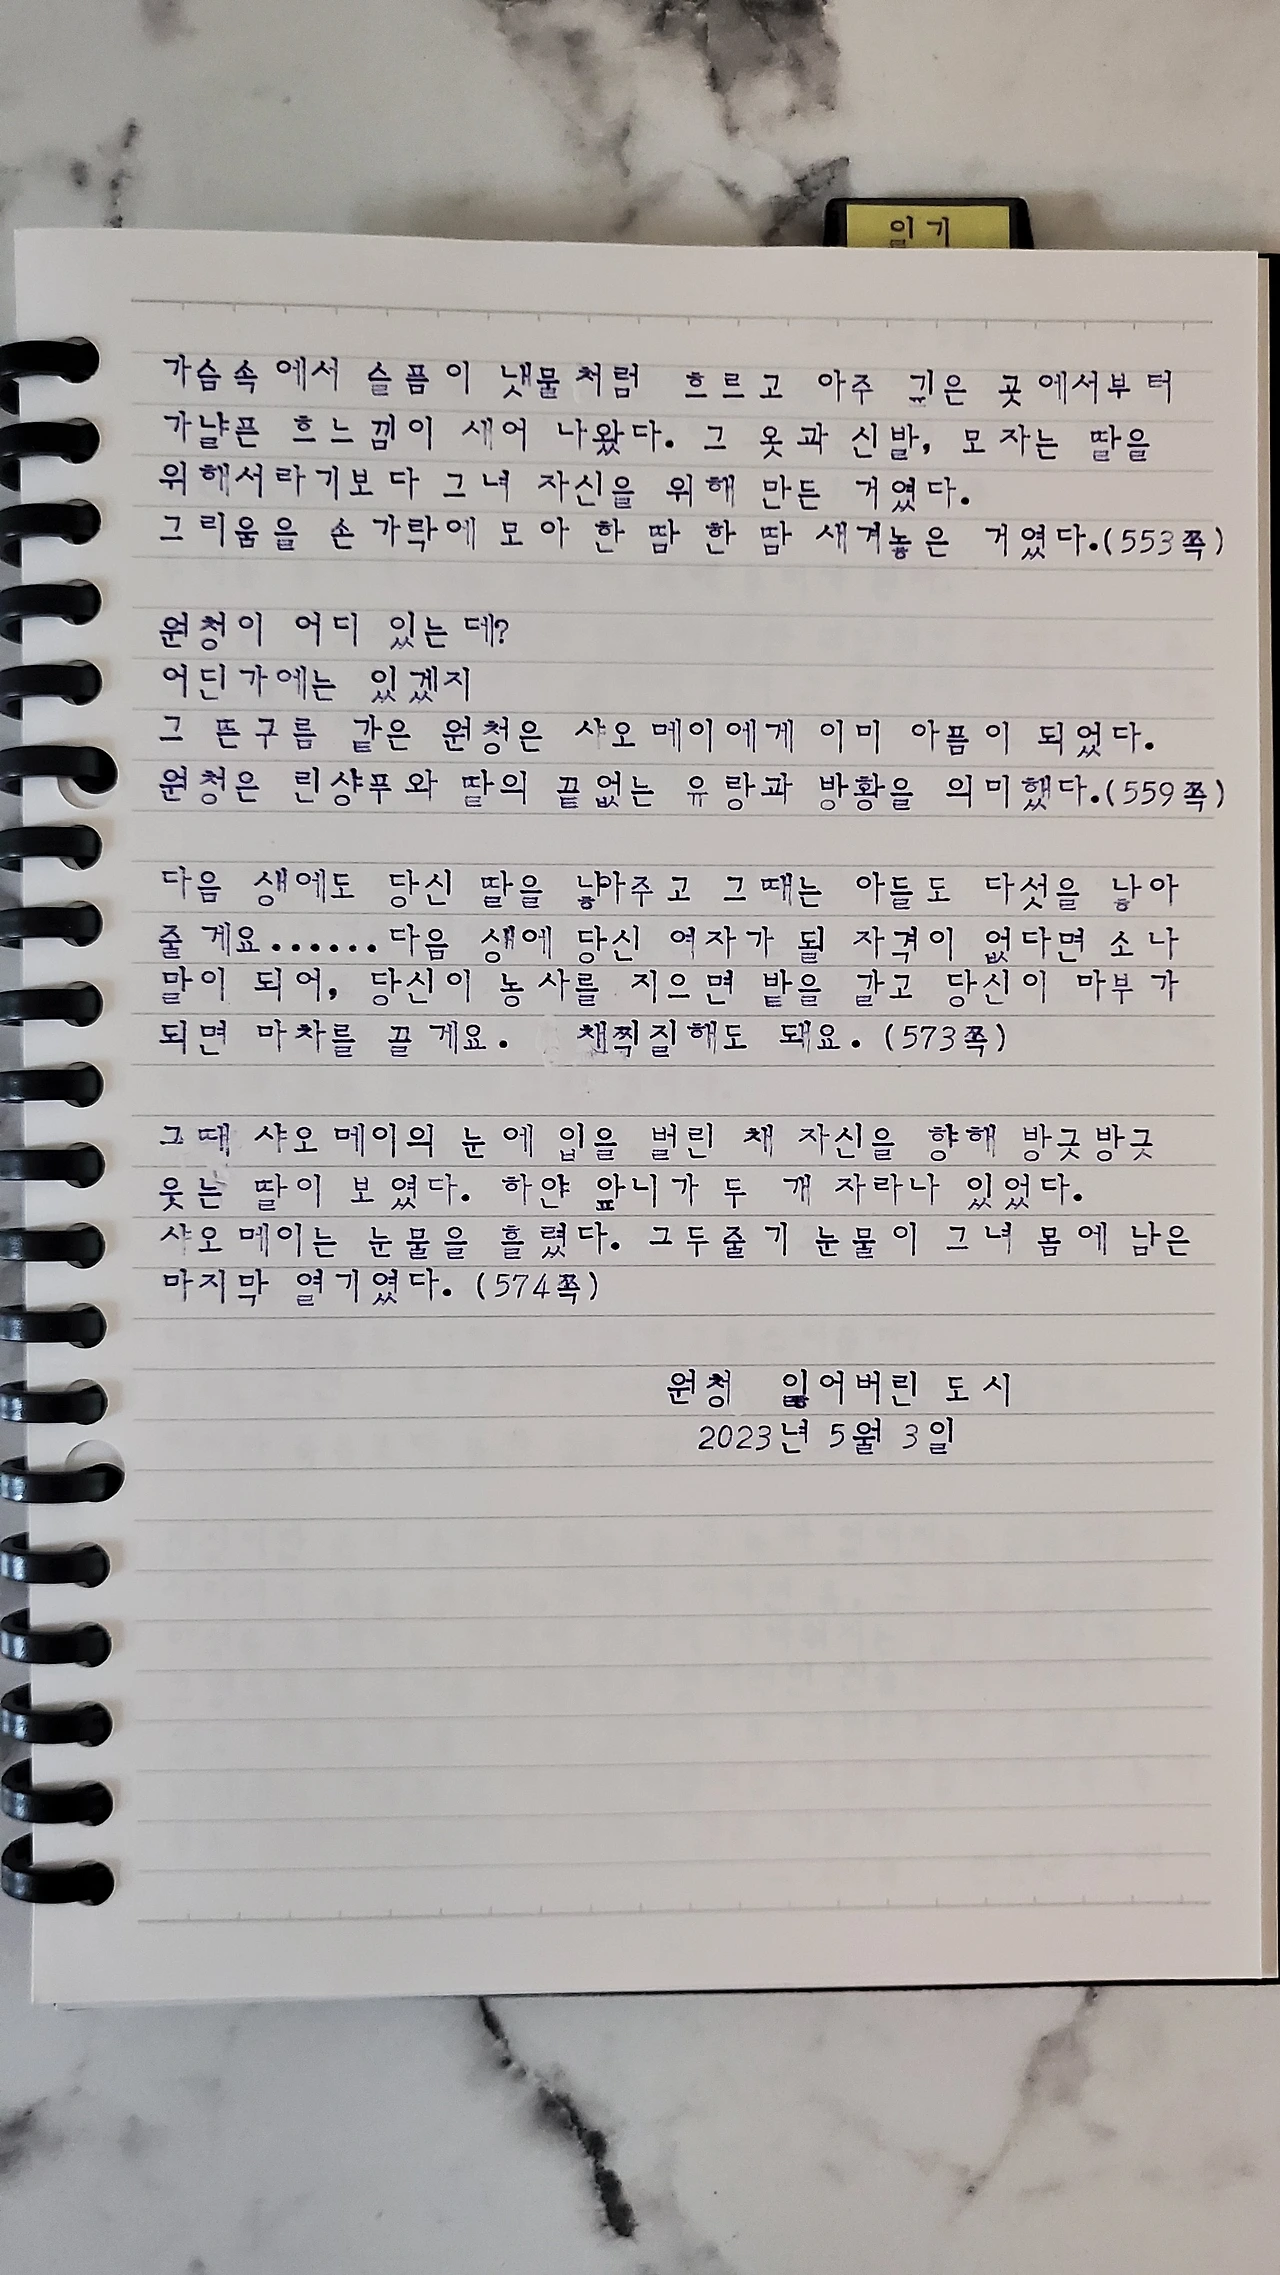 일기
가슴속에서 슬픔이 냇물처럼 흐르고 아주 깊은 곳에서부터
가냘픈 흐느낌이 새어 나왔다. 그 옷과 신발, 모자는 딸을
위해서라기보다 그녀 자신을 위해 만든 거였다.
그리움을 손가락에 모아 한 땀 한 땀 새겨놓은 거였다.(553쪽)
원청이 어디 있는데?
어딘가에는 있겠지
그 뜬구름 같은 원청은 샤오메이에게 이미 아픔이 되었다.
원청은 린샹푸와 딸의 끝없는 유랑과 방황을 의미했다.(559쪽)
다음 생에도 당신 딸을 낳아주고 그때는 아들도 다섯을 낳아
줄게요......다음 생에 당신 여자가 될 자격이 없다면 소나
말이 되어, 당신이 농사를 지으면 밭을 갈고 당신이 마부가
되면 마차를 끌게요. 채찍질해도 돼요. (573쪽)
그때 샤오메이의 눈에 입을 벌린 채 자신을 향해 방긋방긋
웃는 딸이 보였다. 하얀 앞니가 두 개 자라나 있었다.
샤오메이는 눈물을 흘렸다. 그두줄기 눈물이 그녀 몸에 남은
마지막 열기였다. (574쪽)
원청 잃어버린 도시
2023년 5월 3일